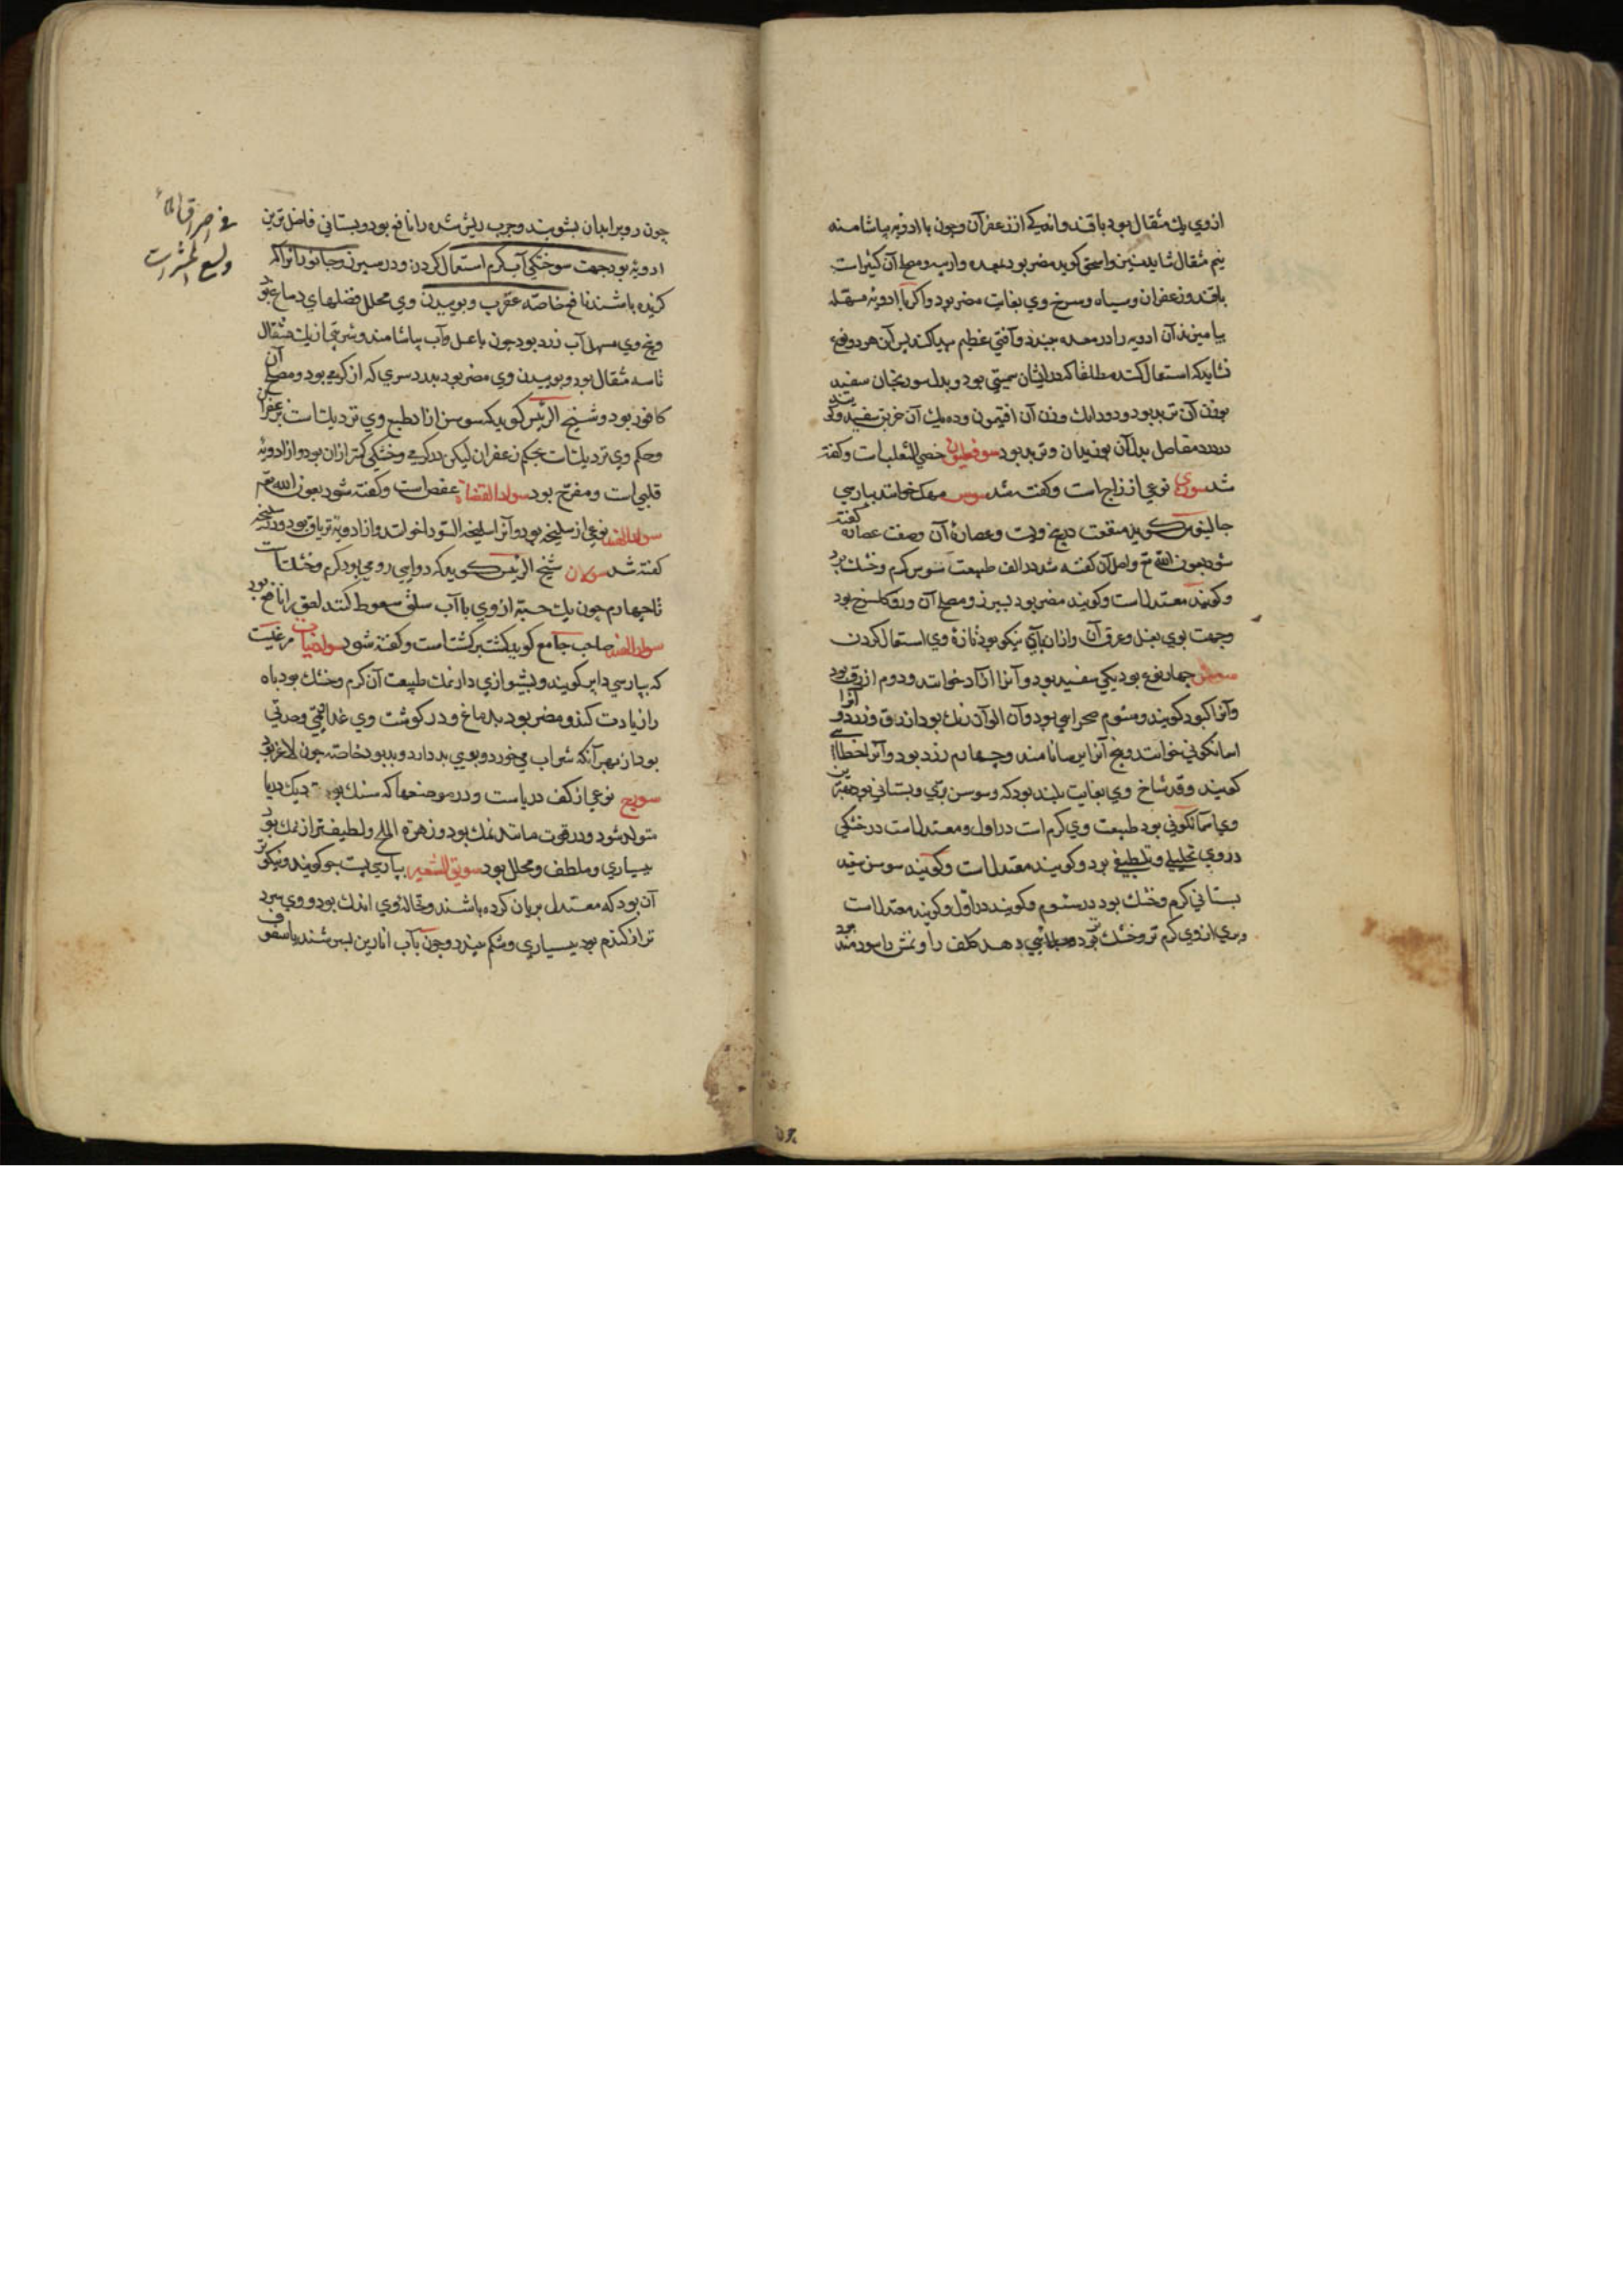 ازوی یك مثقال بود باقند و اندکی از زعفران و چون با ادویه بیاشامند
نیم مثقال شاید و اسحق کوید مضر بود بمعده و مصلح آن کثیراست
باقند و زعفران و سیاه و سرخ وی بغایت مضر بود و اکر با ادویه مسهله
بیامیزند آن ادویه را در معده ببندد و آفتی عظیم پیدا کند پس آن هر دو نوع
نشاید که استعمال کنند مطلقا که در ایشان سمیتی بود و بدل سورنجان سفید
بوزن آن تربد بود و دو دانك وزن آن افتیمون و ده یك آن خربق سفید و
درد مفاصل بدل آن بوزیدان و تربد بود سوفطیون خصی الثعلب است و کفته
شد سوری نوعی از زاج است و کفته شد سوس مهك خوانند بپارسی
جالینوس کوید منفعت در بیخ ویست و عصارۀ آن وصفت عصاره کفته
شود بعون الله تع و اصل آن کفته شد در الف طبیعت سوس کرم و خشك بود
و کویند معتدلست و کویند مضر بود بسپرز و مصلح آن ورد کلسرخ بود
وجهت بوی بغل و عرق آن و ازان پای نیکو بود تازۀ وی استعمال کردن
سوسن چهار نوع بود یکی سفید بود و آنرا آزاد خوانند و دوم ازرق بود
و آنرا کبود کویند و سئوم صحرایی بود و آن الوان رنك بود ازرق و زرد و آنرا
اسمانکونی خوانند و بیخ آنرا ایرسا نامند و چهارم زرد بود و آنرا خطایی
کویند و قد شاخ وی بغایت بلند بود که و سوسن بری و بستانی بود بهترین
وی اسمانکونی بود طبیعت وی کرم است در اول و معتدلست در خشکی
در وی تحلیلی و تلطیفی بود و کویند معتدلست و کویند سوسن سفید
بستانی کرم و خشك بود در سئوم و کویند در اول و کویند معتدلست
و بری ازوی کرم تر و خشك تر بود و جلایی دهد کلف را و نمش را سودمند بود
چون روی را بدان بشویند و جرب ریش شده را نافع بود و بستانی فاضل ترین
ادویه بود جهت سوختکی آب کرم استعمال کردن و در سپرز و جانوران را که
کزنده باشند نافع خاصه عقرب و بوییدن وی محلل فضلهای دماغ بود
و بیخ وی مسهل آب زرد بود چون با عسل و آب بیاشامند و شربتی از یك مثقال
تا سه مثقال بود و بوییدن وی مضر بود بدرد سری که از کرمی بود و مصلح آن
کافور بود و شیخ الرئیس کوید که سوسن آزاد طبع وی نزدیکست بزعفران
و حکم وی نزدیکست بحکم زعفران لیکن در کرمی و خشکی کمتر ازان بود و از ادویۀ
قلبی است و مفرح بود سواد القضاة عفص است و کفته شود بعون الله تع
نوعی از سلیخه بود و آنرا سلیخه السودا خوانند و از ادویۀ تریاق بود و در سلیخه
کفته شد شیخ الرئیس کوید که دوایی رومی بود کرم و خشکست
تا چهارم چون یك حبه ازوی با آب سلق سعوط کنند لقوه را نافع بود
سواد الهند صاحب جامع کوید کشت برکشت است و کفته شود مرغیست
که بپارسی کویند و بشیرازی دارنمك طبیعت آن کرم و خشك بود باه
را زیادت کند و مضر بود بدماغ و در کوشت وی غذائیتی و حدتی
بود از بهر آنکه شراب می خورد و بوی بد دارد و بد بود خاصه چون لاغر بود
سورج نوعی از کف دریاست و در موضعها که سنك بود نزدیك دریا
متولد شود و در قوت مانند نمك بود و زهرة الملح و لطیفتر از نمك بود
بسیاری و ملطف و محلل بود سویق الشعیر بپارسی پست جو کویند و نیکوتر
آن بود که معتدل بریان کرده باشند و نخالۀ وی اندك بود و وی سرد
تر از کندم بود بسیاری و شکم ببندد و چون بآب انارین بسرشند یا سفوف
فی احراق الماء
ولسع الحشرات